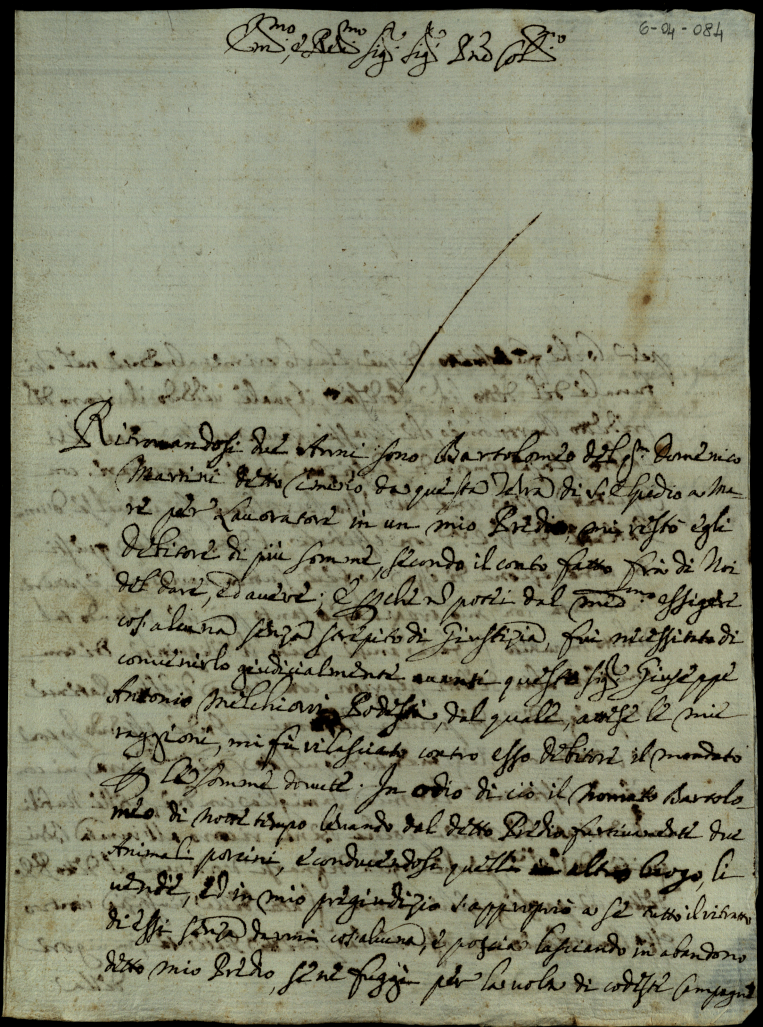 6-04-084
Em.mo, e Rev.mo Sig.r Sig.r Prñe Col.mo
Ritrovandosi due Anni sono Bartolomeo del q.m Domenico
Martini detto Cimerio da questa Terra di S. Elpedio a Ma-
re per Lavoratore in un mio Predio, mi restò egli
debitore di più somme, secondo il conto fatto frà di Noi
del dare, ed avere; E perche n potei dal med.mo essigere
cos'alcuna senza strepito di Giustizia, fui necessitato di
convenirlo giudizialmente avanti questo Sig.r Giuseppe
Antonio Melchiorri Podestà, dal quale, attese le mie
raggioni, mi fù rilasciato contro esso debitore il mandato
p le somme dovute. In odio di ciò il nomato Bartolo-
meo di notte tempo levando dal detto Predio furtivamente due
Animali porcini, e conducendosi quelli in altro luogo, li
vendè, ed in mio pregiudizio s'appropriò a se tutto il ritratto
di essi senza darmi cos'alcuna, e poscia lasciando in abandono
detto mio Predio, se ne fuggì per la volta di codeste Campagne